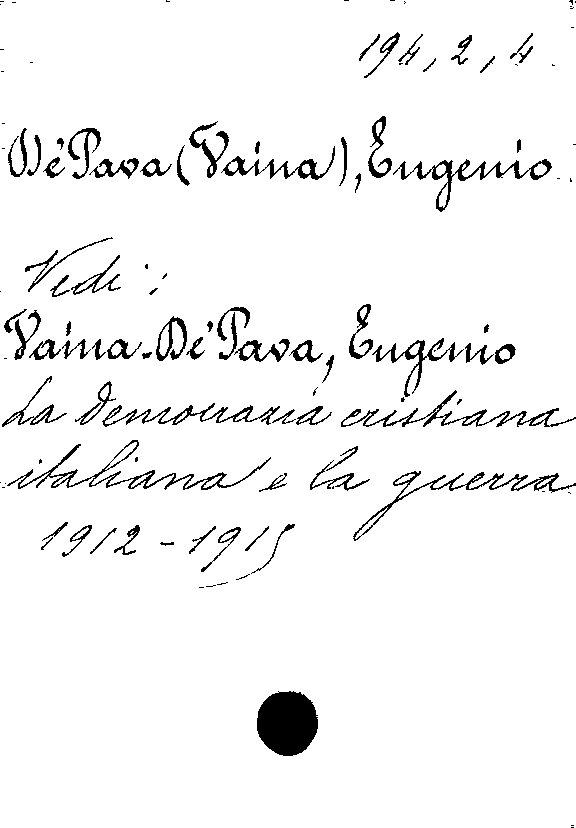 194, 2, 4
De' Pava (Vaina), Eugenio
Vedi:
Vaina-De' Pava, Eugenio
La democrazia cristiana
italiana e la guerra
1912 - 1915